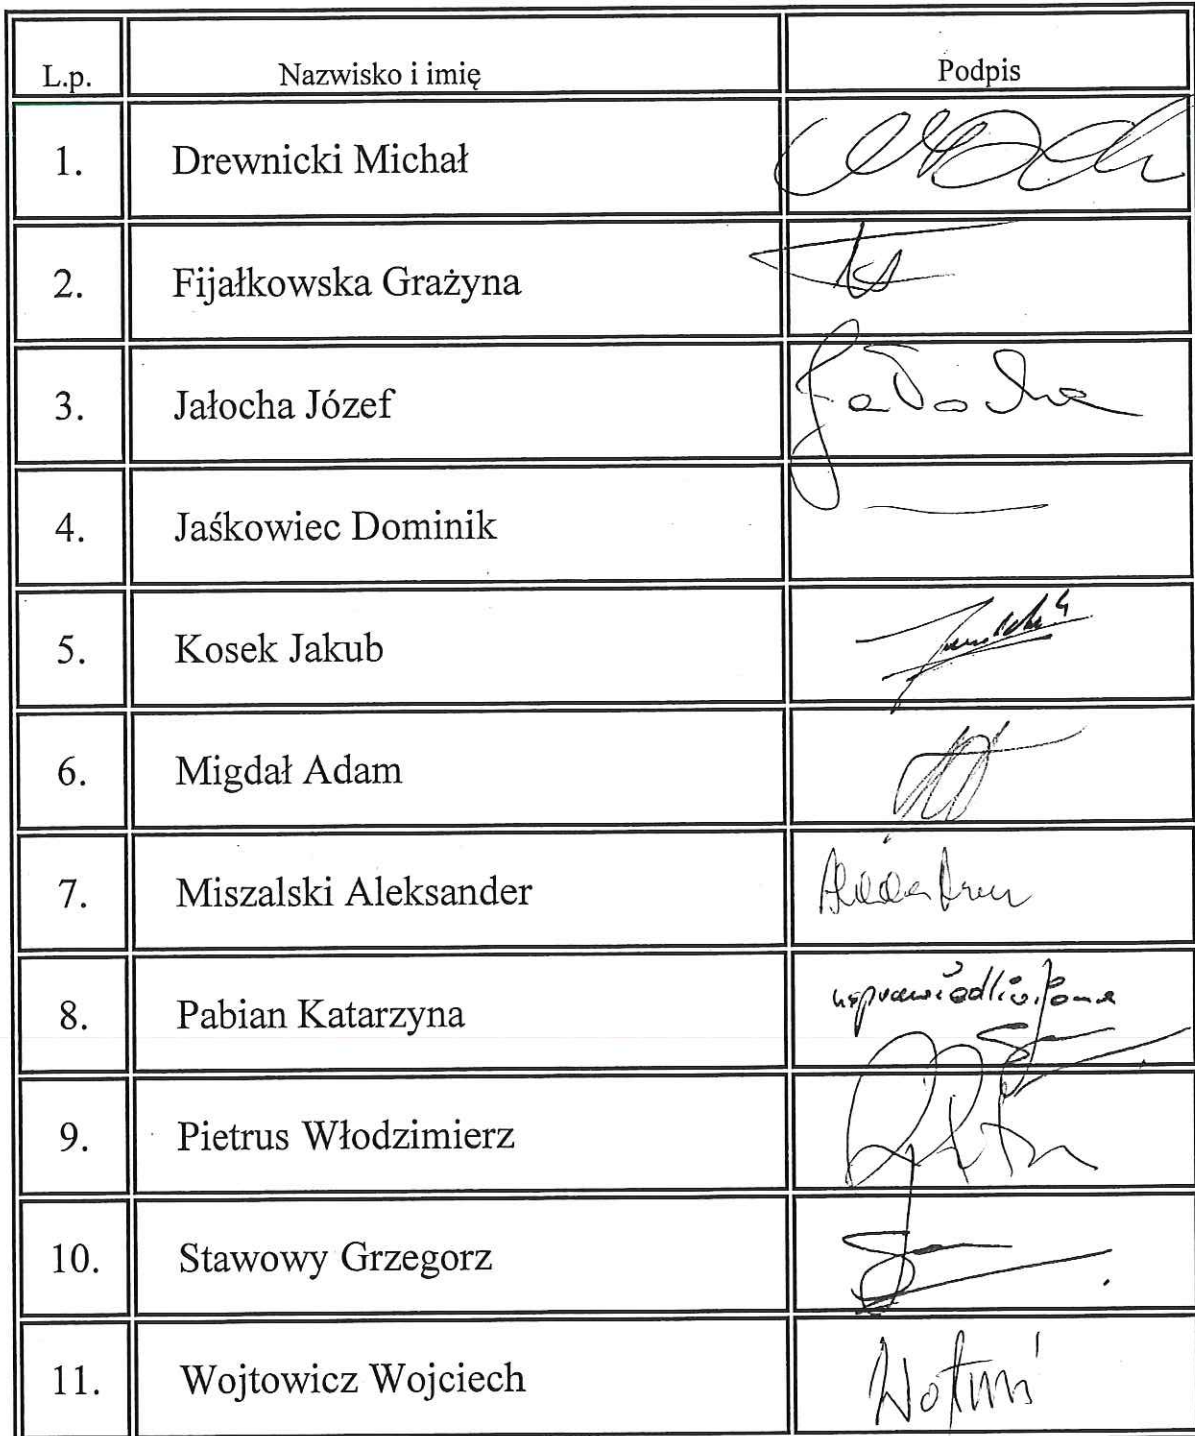 L.p. Nazwisko i imię Podpis
1. Drewnicki Michał
2. Fijałkowska Grażyna
3. Jałocha Józef Jałocha
4. Jaśkowiec Dominik
5. Kosek Jakub
6. Migdał Adam
7. Miszalski Aleksander
8. Pabian Katarzyna usprawiedliwiona
9. Pietrus Włodzimierz
10. Stawowy Grzegorz
11. Wojtowicz Wojciech